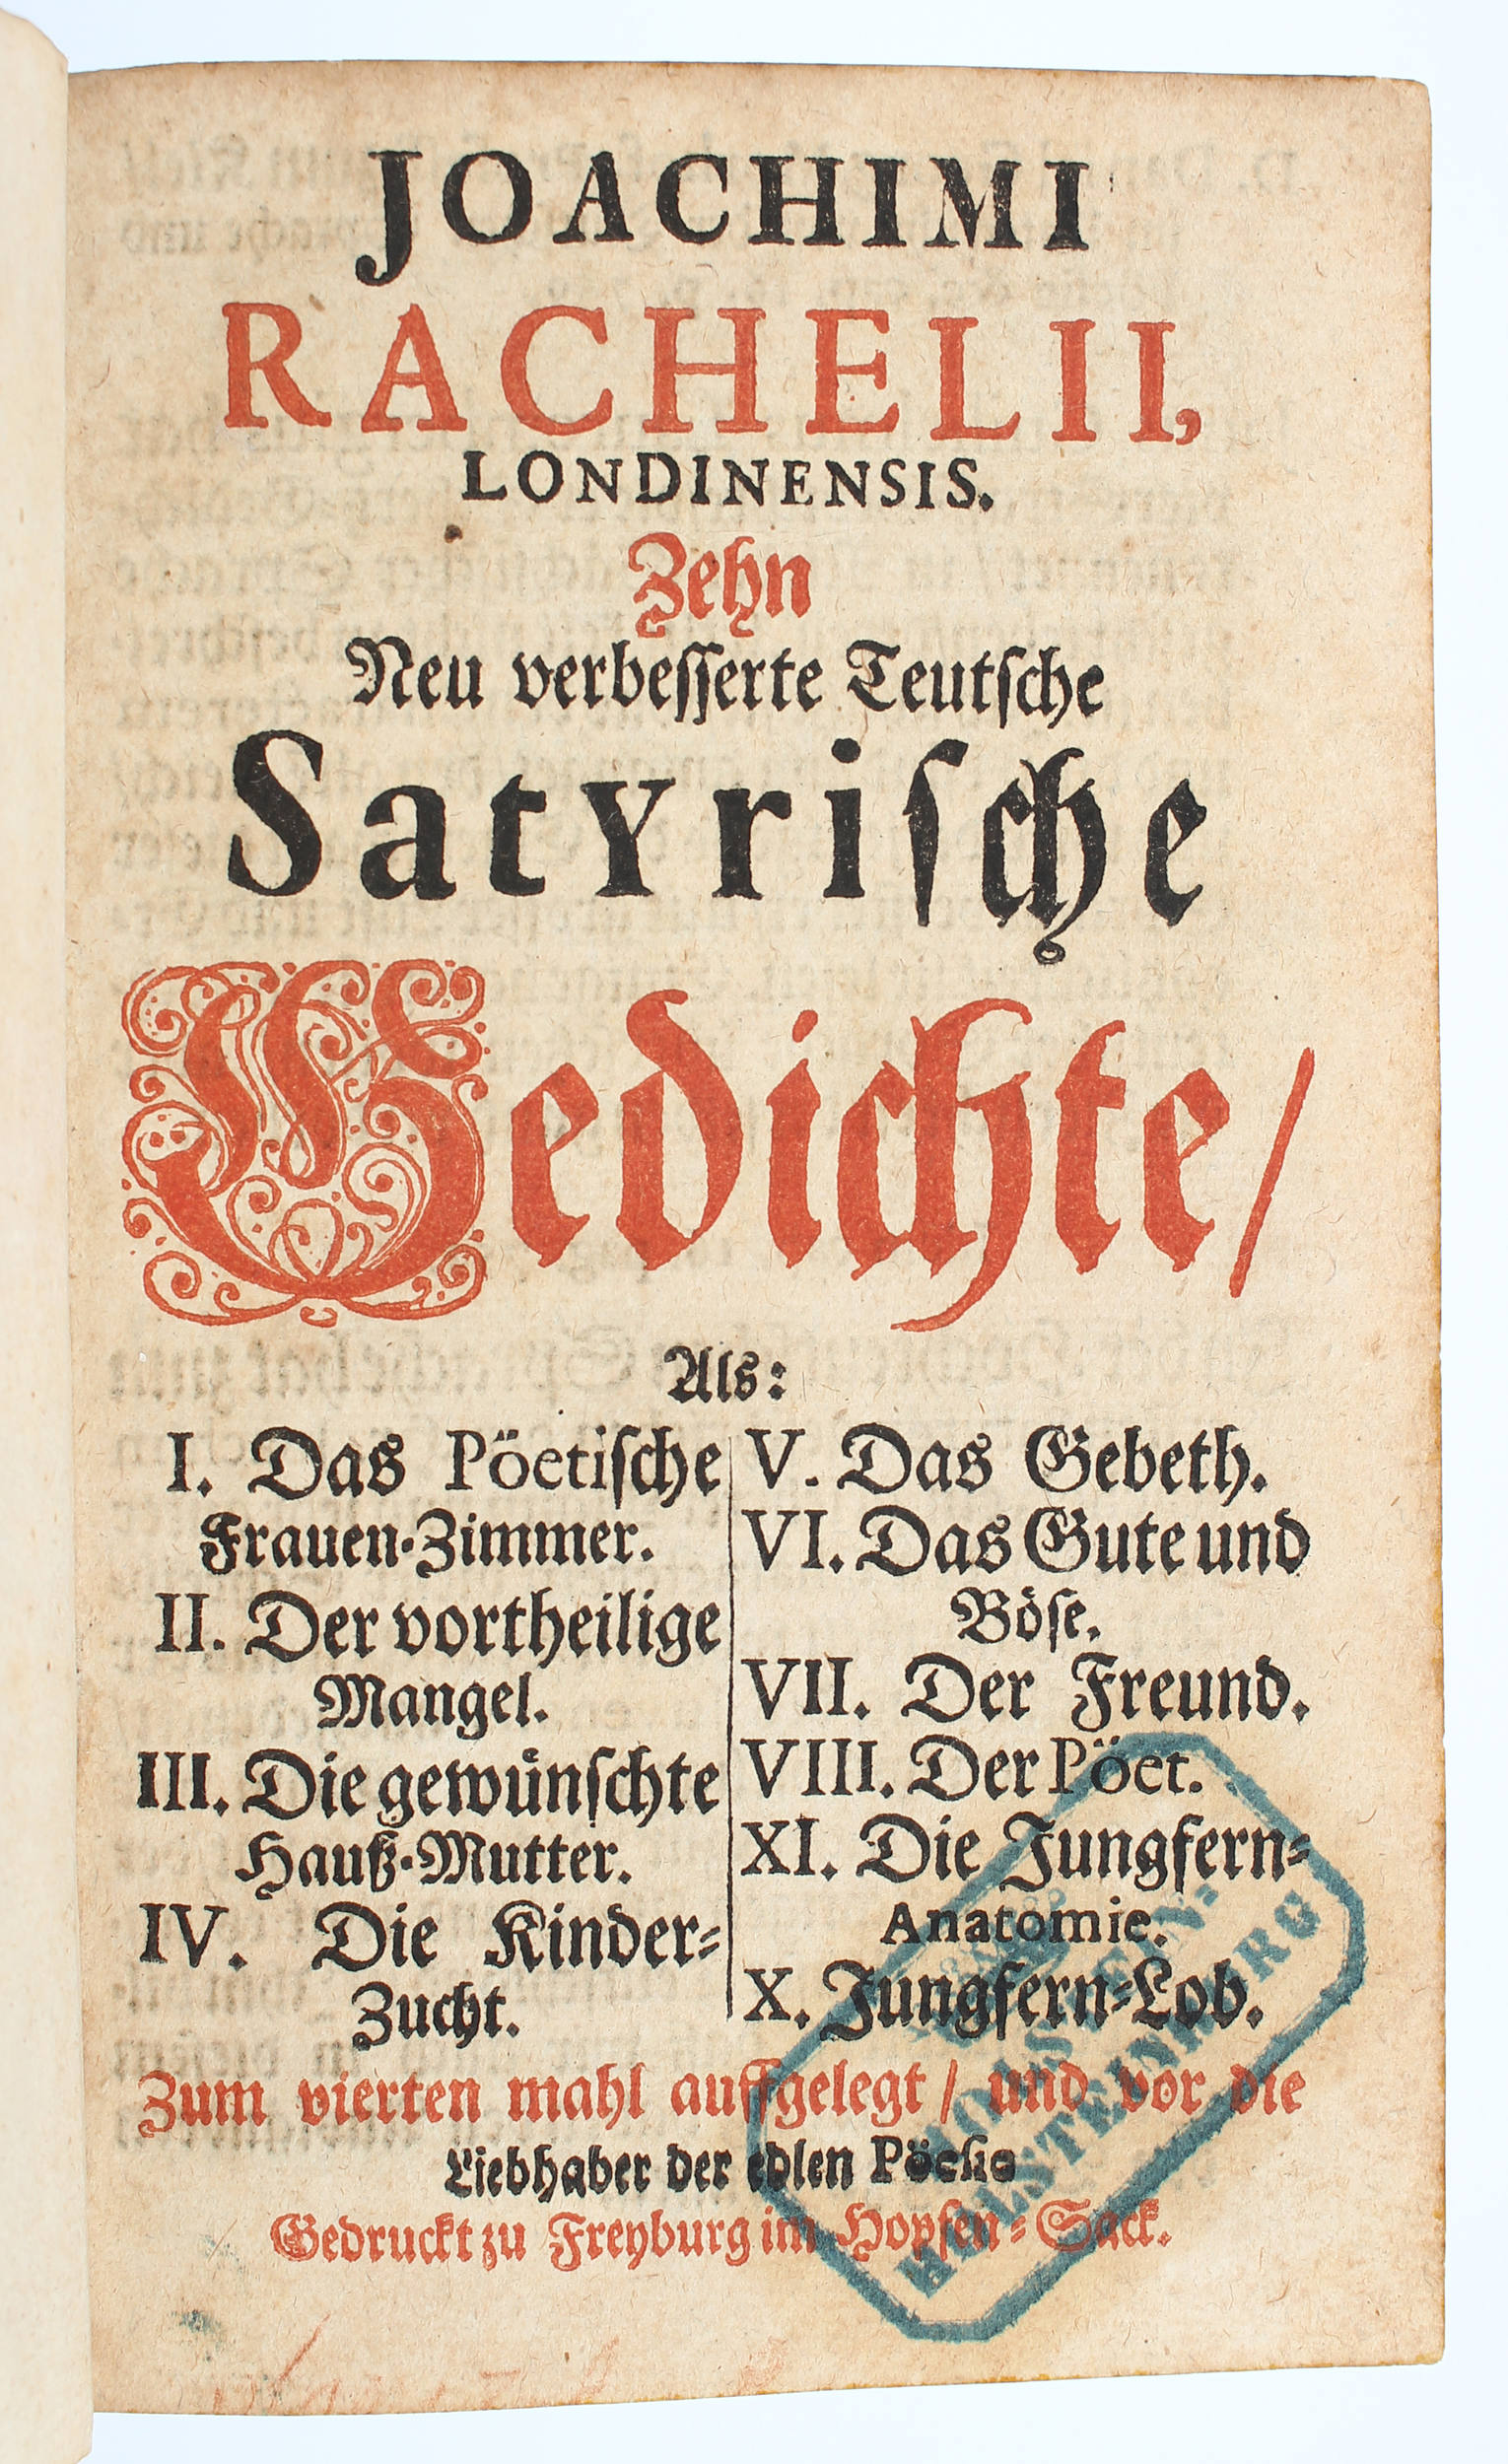 JOACHIMI
RACHELII,
LONDINENSIS.
Zehn
Neu verbesserte Teutsche
Satyrische
Gedichte/
Als:
I. Das Pöetische
Frauen-Zimmer.
II. Der vortheilige
Mangel.
III. Die gewünschte
Hauß-Mutter.
IV. Die Kinder-
Zucht.
V. Das Gebeth.
VI. Das Gute und
Böse.
VII. Der Freund.
VIII. Der Pöet.
XI. Die Jungfern-
Anatomie.
X. Jungfern-Lob.
Zum vierten mahl auffgelegt/ und vor die
Liebhaber der edlen Pöesie
Gedruckt zu Freyburg im Hopfen-Sack.
HOLSTEIN-
HOLSTEINBORG